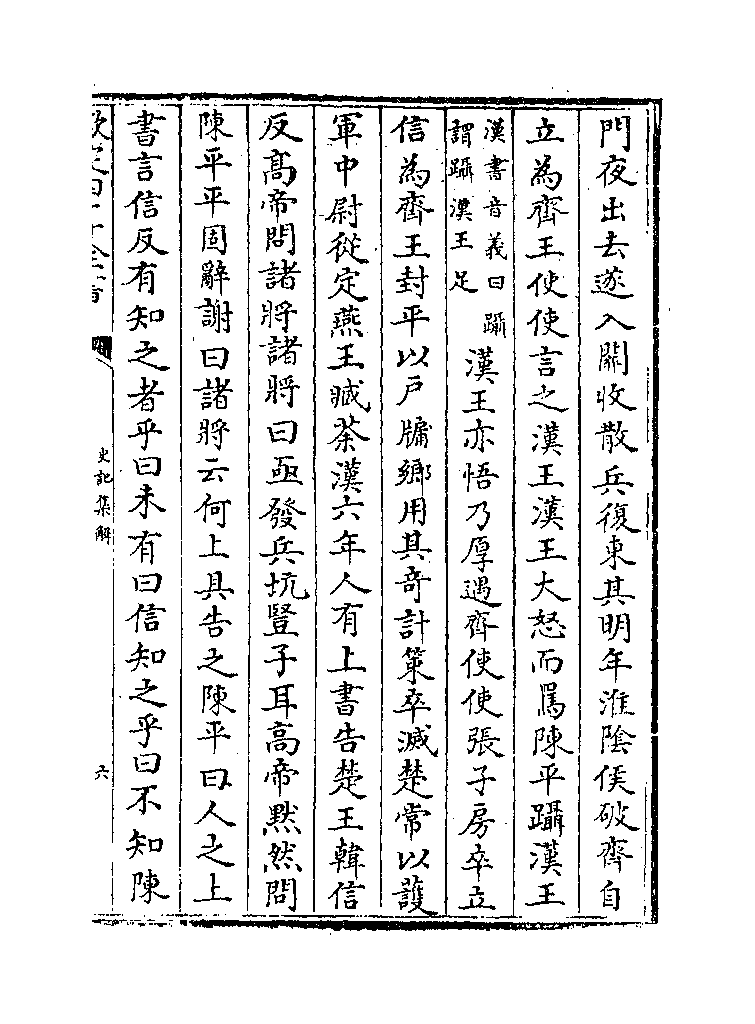 門夜出去遂入關收散兵復東其明年淮陰侯破齊自
立為齊王使使言之漢王漢王大怒而罵陳平躡漢王
漢書音義曰躡
謂躡漢王足
漢王亦悟乃厚遇齊使使張子房卒立
信為齊王封平以戸牖鄉用其奇計策卒滅楚常以護
軍中尉從定燕王臧荼漢六年人有上書告楚王韓信
反高帝問諸將諸將曰亟發兵坑豎子耳高帝黙然問
陳平平固辭謝曰諸將云何上具告之陳平曰人之上
書言信反有知之者乎曰未有曰信知之乎曰不知陳
史記集解
六